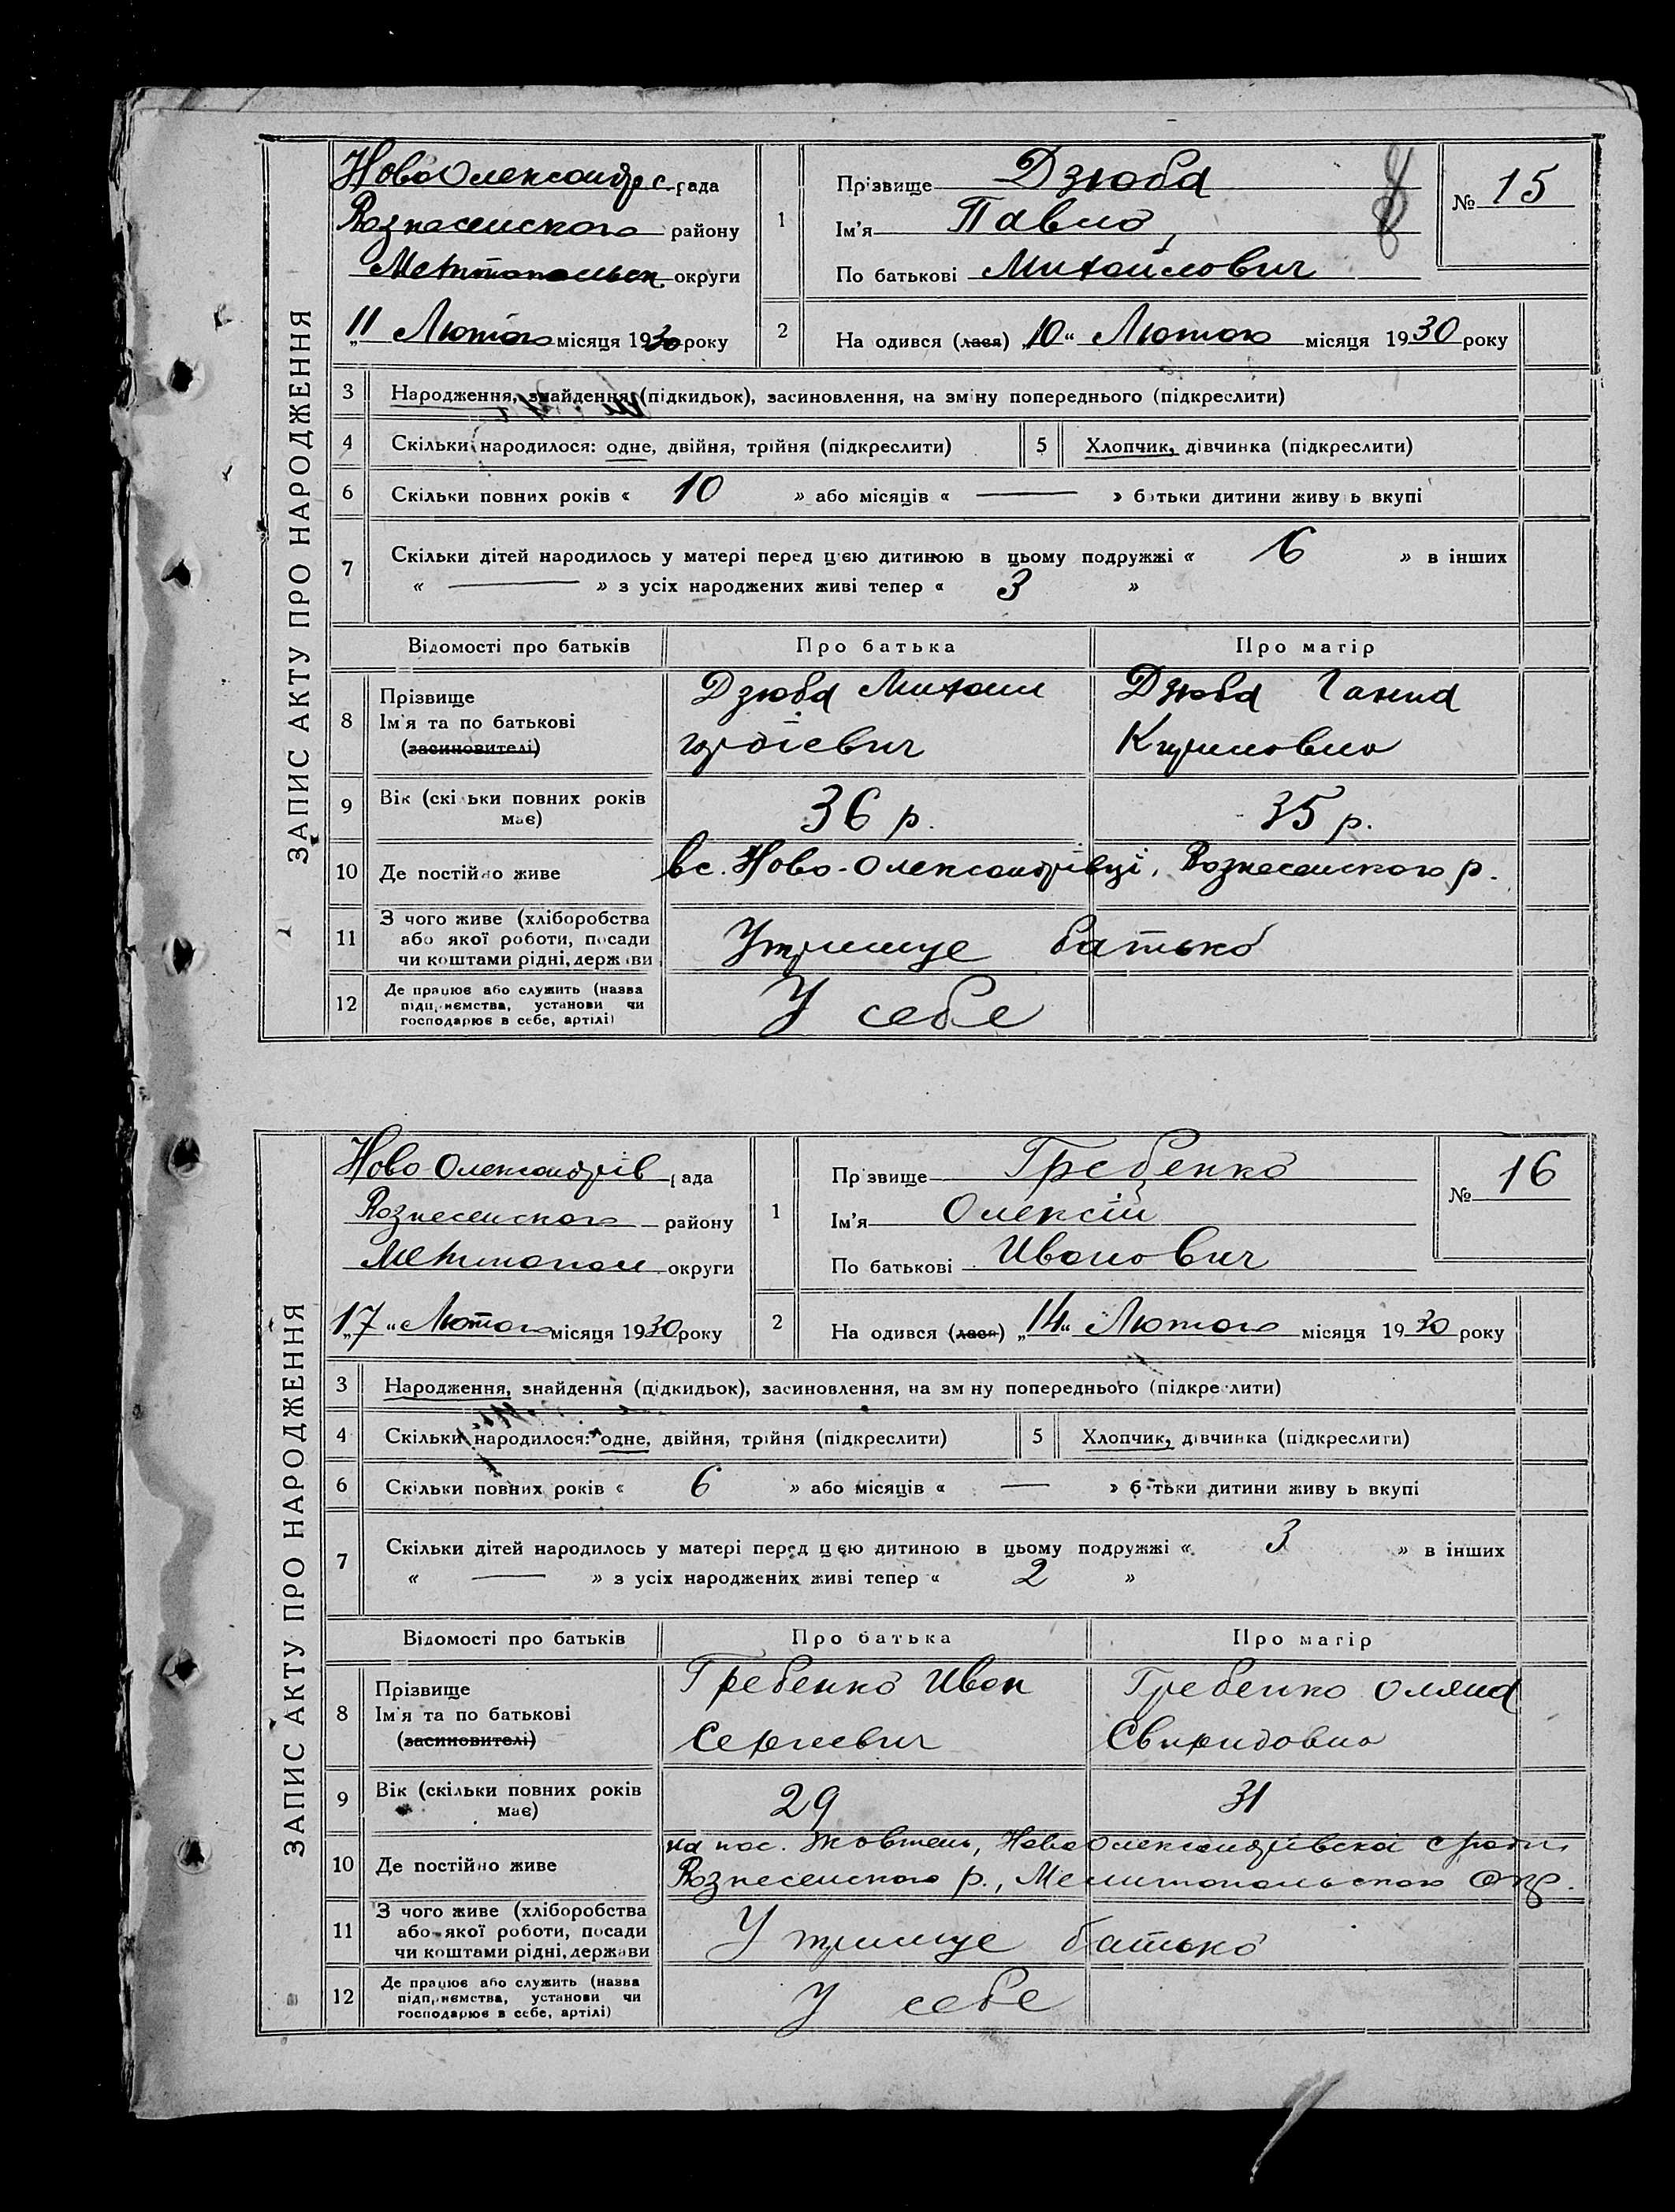 ЗАПИС АКТУ ПРО НАРОДЖЕННЯ
НовоОлександр с. рада
Вознесенского району
Мелітопольск. округи
„11 Лютого місяця 1930 року
1
Прізвище Дзюба
Ім'я Павло
По батькові Михайлович
№ 15
2
На одився (лася) „10“ Лютого місяця 1930 року
3 Народження, знайдення (підкидьок), засиновлення, на зміну попереднього (підкреслити)
4 Скільки народилося: одне, двійня, трійня (підкреслити)
5 Хлопчик, дівчинка (підкреслити)
6 Скільки повних років « 10 » або місяців « — » батьки дитини живу ь вкупі
7 Скільки дітей народилось у матері перед цією дитиною в цьому подружжі « 6 » в інших
« — » з усіх народжених живі тепер « 3 »
Відомості про батьків Про батька Про матір
8 Прізвище
Ім'я та по батькові
(засиновителі)
Дзюба Михаил
Дзюба Ганна
Кириловна
9 Вік (скі ьки повних років
має)
36 р. 35 р.
10 Де постійно живе вс. Ново-Олександрівці, Вознесенского р.
11 З чого живе (хліборобства
або якої роботи, посади
чи коштами рідні, держ ви
Утримує батько
12 Де працює або служить (назва
підприємства, установи чи
господарює в себе, артілі)
У себе
ЗАПИС АКТУ ПРО НАРОДЖЕННЯ
Ново-Олександрів рада
Вознесенского району
Мелітопол округи
„17“ Лютого місяця 1930 року
1
Пр звище Гребенко
Ім'я Олексій
По батькові Иванович
№ 16
2
На одився (лася) „14“ Лютого місяця 1930 року
3 Народження, знайдення (підкидьок), засиновлення, на зм ну попереднього (підкре лити)
4 Скільки народилося: одне, двійня, трійня (підкреслити)
5 Хлопчик, дівчинка (підкреслити)
6 Скільки повних років « 6 » або місяців « — » б тьки дитини живу ь вкупі
7 Скільки дітей народилось у матері перед цією дитиною в цьому подружжі « 3 » в інших
« — » з усіх народжених живі тепер « 2 »
Відомості про батьків Про батька Про матір
8 Прізвище
Ім'я та по батькові
(засиновителі)
Гребенко Иван
Сергиевич
Гребенко Оляна
Свиридовна
9 Вік (скільки повних років
має)
29 31
10 Де постійно живе
на пос. Жовтень, НовоОлександрівскої с/ради,
Вознесенского р., Мелитопольского окр.
11 З чого живе (хліборобства
або якої роботи, посади
чи коштами рідні, держави
Утримує батько
12 Де працює або служить (назва
підприємства, установи чи
господарює в себе, артілі)
У себе